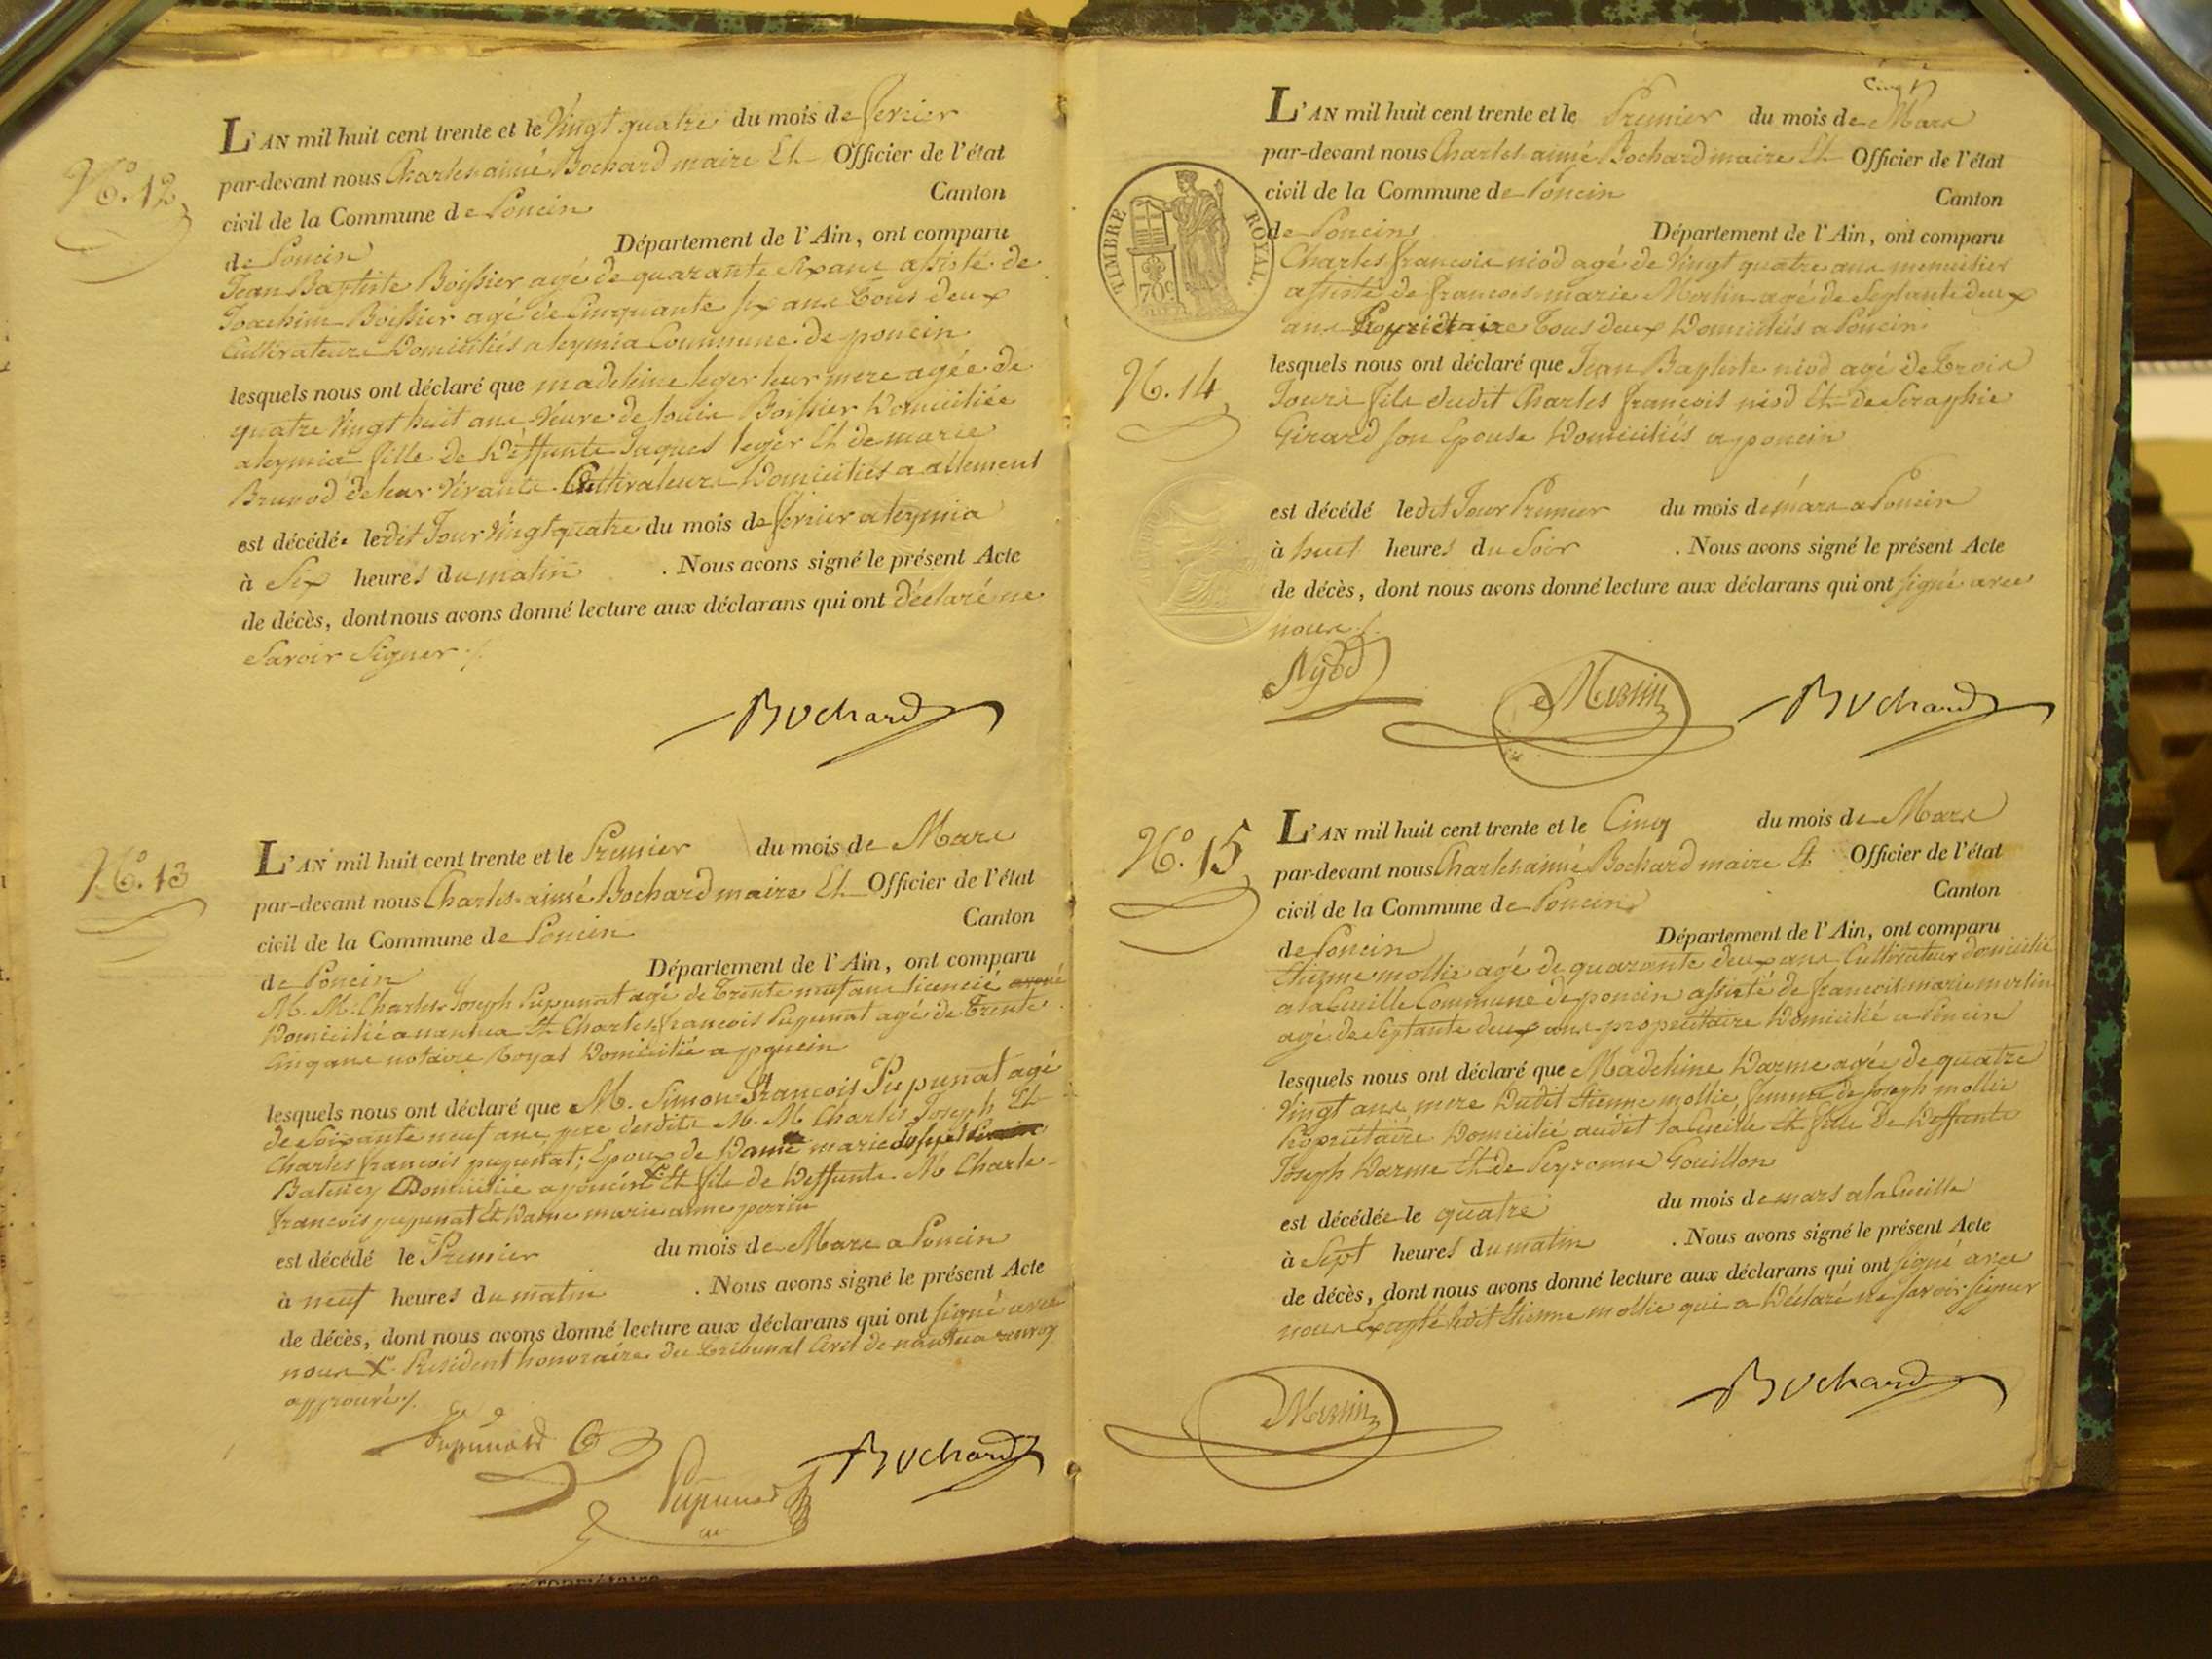 N.º 12
L'AN mil huit cent trente et le Vingt quatre du mois de fevrier
par-devant nous Charles aimé Bochard maire Et Officier de l'état
civil de la Commune de Poncin Canton
de Poncin Département de l'Ain, ont comparu
Jean Baptiste Boissier agé de quarante six ans assisté de
Joachim Boissier agé de Cinquante six ans tous deux
Cultivateurs Domiciliés a leymia Commune de poncin
lesquels nous ont déclaré que madeleine leger leur mere agée de
quatre Vingt huit ans Veuve de louis Boissier Domiciliée
a leymia fille de Deffunts Jaques leger Et de marie
Brunod de leur Vivants Cultivateurs Domiciliés a allement
est décédée ledit Jour Vingt quatre du mois de fevrier a leymia
à Six heures du matin . Nous avons signé le présent Acte
de décès, dont nous avons donné lecture aux déclarans qui ont déclaré ne
Savoir Signer ./.
Bochard
N.º 13
L'AN mil huit cent trente et le Premier du mois de Mars
par-devant nous Charles aimé Bochard maire Et Officier de l'état
civil de la Commune de Poncin Canton
de Poncin Département de l'Ain, ont comparu
M. M. Charles Joseph Pupunat agé de trente neuf ans licencié avoué
Domicilié a nantua Et Charles francois Pupunat agé de trente
Cinq ans notaire Royal Domicilié a poncin
lesquels nous ont déclaré que M. Simon francois Pupunat agé
de Soixante neuf ans pere desdits M. M. Charles Joseph Et
Charles francois pupunat, Epoux de Dame marie
Domicilié a poncin X Et fils de Deffunts M Charle
francois pupunat Et Dame marie anne perrin
est décédé le Premier du mois de Mars a Poncin
à neuf heures du matin . Nous avons signé le présent Acte
de décès, dont nous avons donné lecture aux déclarans qui ont signé avec
nous X President honoraire du tribunal Civil de nantua renvoy
approuvé ./.
Pupunat
Bochard
Cinq
TIMBRE ROYAL
70c
L'AN mil huit cent trente et le Premier du mois de Mars
par-devant nous Charles aimé Bochard maire Et Officier de l'état
civil de la Commune de Poncin Canton
de Poncin Département de l'Ain, ont comparu
Charles francois niod agé de Vingt quatre ans menuisier
assisté de francois marie Merlin agé de Septante deux
ans Proprietaire tous deux Domiciliés a Poncin
N. 14
lesquels nous ont déclaré que Jean Baptiste niod agé de trois
Jours fils dudit Charles francois niod Et de Seraphie
Girard son Epouse Domiciliés a poncin
est décédé ledit Jour Premier du mois de mars a Poncin
à huit heures du Soir . Nous avons signé le présent Acte
de décès, dont nous avons donné lecture aux déclarans qui ont signé avec
nous ./.
Nyod Merlin Bochard
N.º 15
L'AN mil huit cent trente et le Cinq du mois de Mars
par-devant nous Charles aimé Bochard maire Et Officier de l'état
civil de la Commune de Poncin Canton
de Poncin Département de l'Ain, ont comparu
Etienne mollie agé de quarante deux ans Cultivateur domicilié
a la Cueille Commune de poncin assisté de francois marie merlin
agé de Septante deux ans proprietaire Domicilié a Poncin
lesquels nous ont déclaré que Madeleine Darme agée de quatre
Vingt ans mere Dudit Etienne mollie femme de Joseph mollie
Propriétaire Domicilié audit la Cueille Et fille De Deffunts
Joseph Darme Et de Peyronne Gouillon
est décédée le quatre du mois de mars a la Cueille
à Sept heures du matin . Nous avons signé le présent Acte
de décès, dont nous avons donné lecture aux déclarans qui ont signé avec
nous Excepté ledit Etienne mollie qui a Déclaré ne Savoir Signer
Merlin Bochard